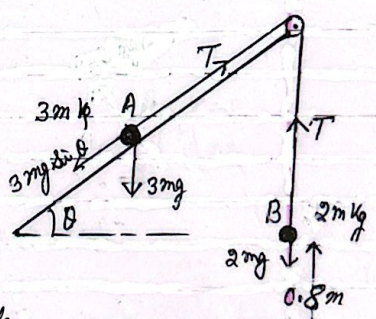 T
A
3m kg
3mg Sin θ
3mg
T
θ
B
2m kg
2mg
0.8m